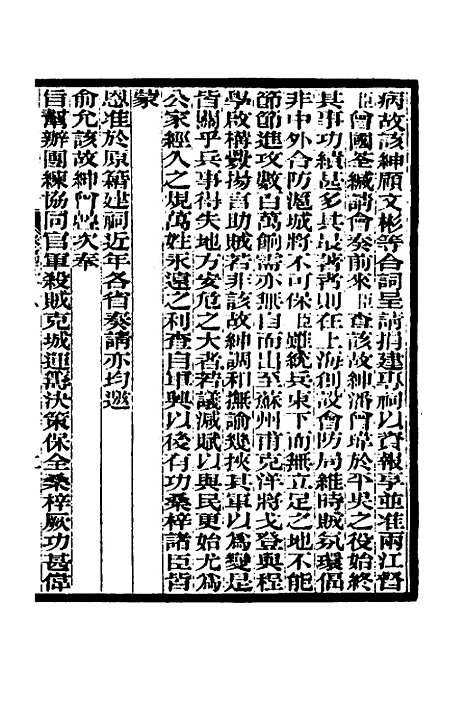 病故該紳顧文彬等合詞呈請捐建專祠以資報享並准兩江督
臣曾國荃緘請會奏前來臣查該故紳潘曾瑋於平吳之役始終
其事功績甚多其最著者則在上海創設會防局維時賊氛環偪
非中外合防滬城將不可保臣雖統兵東下而無立足之地不能
節節進攻數百萬餉需亦無自而出至蘇州甫克洋將戈登與程
學啟構釁揚言助賊若非該故紳調和撫諭幾挾其軍以為變是
皆關乎兵事得失地方安危之大者若議減賦以與民更始尤為
公家經久之規萬姓永遠之利查自軍興以後有功桑梓諸臣皆
蒙
恩准於原籍建祠近年各省奏請亦均邀
俞允該故紳曾屢次奉
旨幫辦團練協同官軍殺賊克城運籌決策保全桑梓厥功甚偉